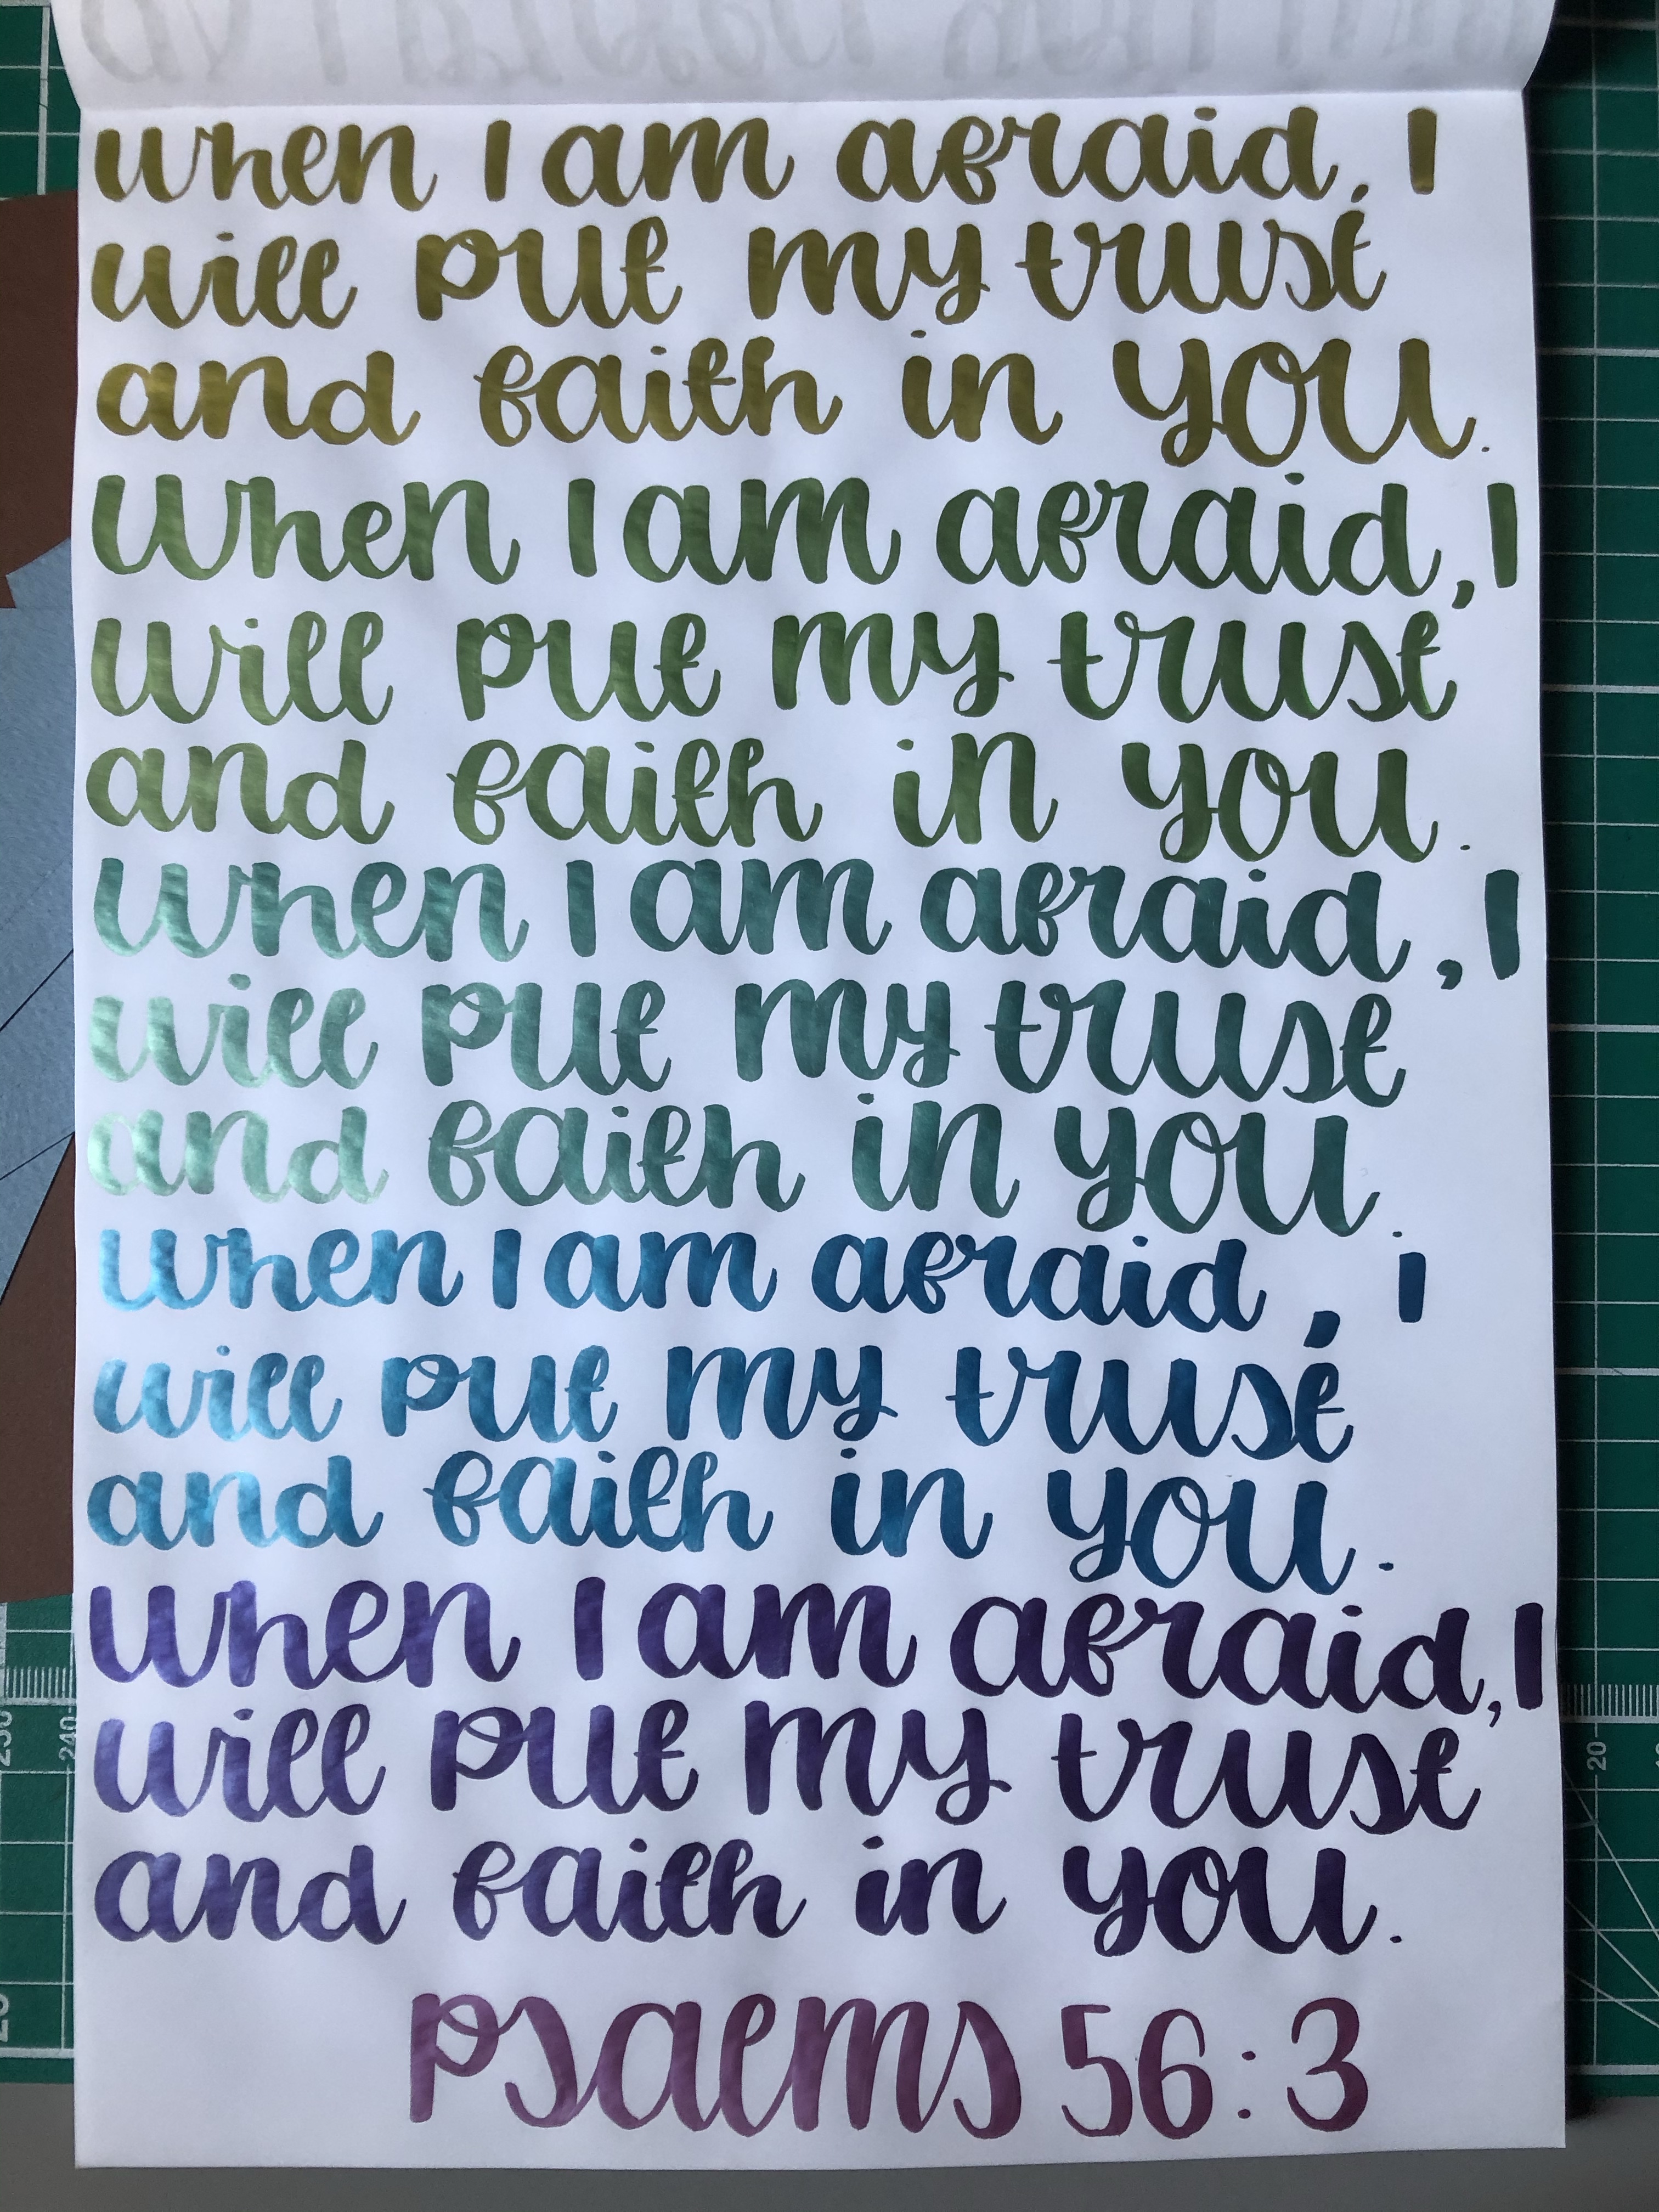 when I am afraid, I
will put my trust
and faith in you.
When I am afraid, I
will put my trust
and faith in you.
When I am afraid, I
will put my trust
and faith in you.
When I am afraid, I
will put my trust
and faith in you.
When I am afraid, I
will put my trust
and faith in you.
Psalms 56:3
230
240
20